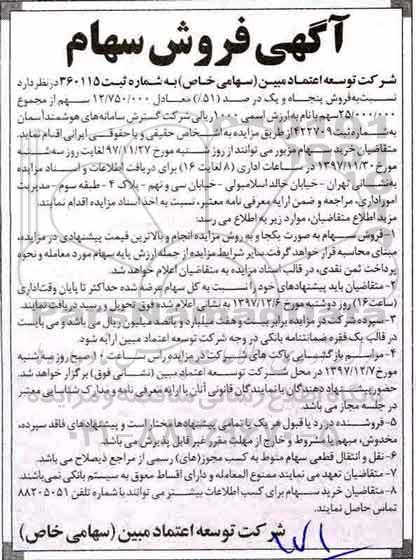 آگهی فروش سهام
شرکت توسعه اعتماد مبین (سهامی خاص) به شماره ثبت ۳۶۰۱۱۵ در نظر دارد
نسبت به فروش پنجاه و یک در صد (۵۱٪) معادل ۱۲/۷۵۰/۰۰۰ سهم از مجموع
۲۵/۰۰۰/۰۰۰ سهم با نام به ارزش اسمی ۱۰۰۰ ریالی شرکت گسترش سامانه‌های هوشمند آسمان
به شماره ثبت ۴۲۲۷۰۹ از طریق مزایده به اشخاص حقیقی و یا حقوقی ایرانی اقدام نماید.
متقاضیان خرید سهام مزبور می توانند از روز شنبه مورخ ۹۷/۱۱/۲۷ لغایت روز سه شنبه
مورخ ۱۳۹۷/۱۱/۳۰ در ساعات اداری (۸ لغایت ۱۶) برای دریافت اطلاعات و اسناد مزایده
به نشانی تهران - خیابان خالد اسلامبولی - خیابان سی و نهم - پلاک ۴ - طبقه سوم - مدیریت
امور اداری، مراجعه و ضمن ارایه معرفی نامه معتبر، نسبت به اخذ اسناد مزایده اقدام نمایند.
مزید اطلاع متقاضیان، موارد زیر به اطلاع می رسد:
۱- فروش سهام به صورت یکجا و به روش مزایده انجام و بالاترین قیمت پیشنهادی در مزایده،
مبنای محاسبه قرار خواهد گرفت. سایر شرایط مزایده از جمله ارزش پایه سهام مورد معامله و نحوه
پرداخت ثمن نقدی، در قالب اسناد مزایده به متقاضیان اعلام خواهد شد.
۲- متقاضیان باید پیشنهادهای خود را نسبت به کل سهام عرضه شده حداکثر تا پایان وقت اداری
(ساعت ۱۶) روز دوشنبه مورخ ۱۳۹۷/۱۲/۶ به نشانی اعلام شده فوق تحویل و رسید دریافت نمایند.
۳- سپرده شرکت در مزایده برابر بیست و هفت میلیارد و پانصد میلیون ریال می باشد و می بایست
در قالب یک فقره ضمانتنامه بانکی در وجه شرکت توسعه اعتماد مبین ارایه شود.
۴- مراسم بازگشایی پاکت های شرکت در مزایده راس ساعت ۱۰ صبح روز سه شنبه
مورخ ۱۳۹۷/۱۲/۷ در محل شرکت توسعه اعتماد مبین (نشانی فوق) برگزار خواهد شد.
حضور پیشنهاد دهندگان یا نمایندگان قانونی آنان با ارائه معرفی نامه و مدارک شناسایی معتبر
در جلسه مجاز می باشد.
۵- فروشنده در رد یا قبول هر یک یا تمامی پیشنهادها مختار است و پیشنهادهای فاقد سپرده،
مخدوش، مبهم یا مشروط و خارج از مهلت مقرر غیر قابل پذیرش می باشد.
۶- نقل و انتقال قطعی سهام منوط به کسب مجوز (های) رسمی از مراجع ذیصلاح می باشد.
۷- متقاضیان تعهد می نمایند ممنوع المعامله و دارای اقساط معوق به سیستم بانکی نمی باشند.
۸- متقاضیان خرید سهام برای کسب اطلاعات بیشتر می توانند با شماره تلفن ۸۸۲۰۵۰۵۱
تماس حاصل نمایند.
شرکت توسعه اعتماد مبین (سهامی خاص)